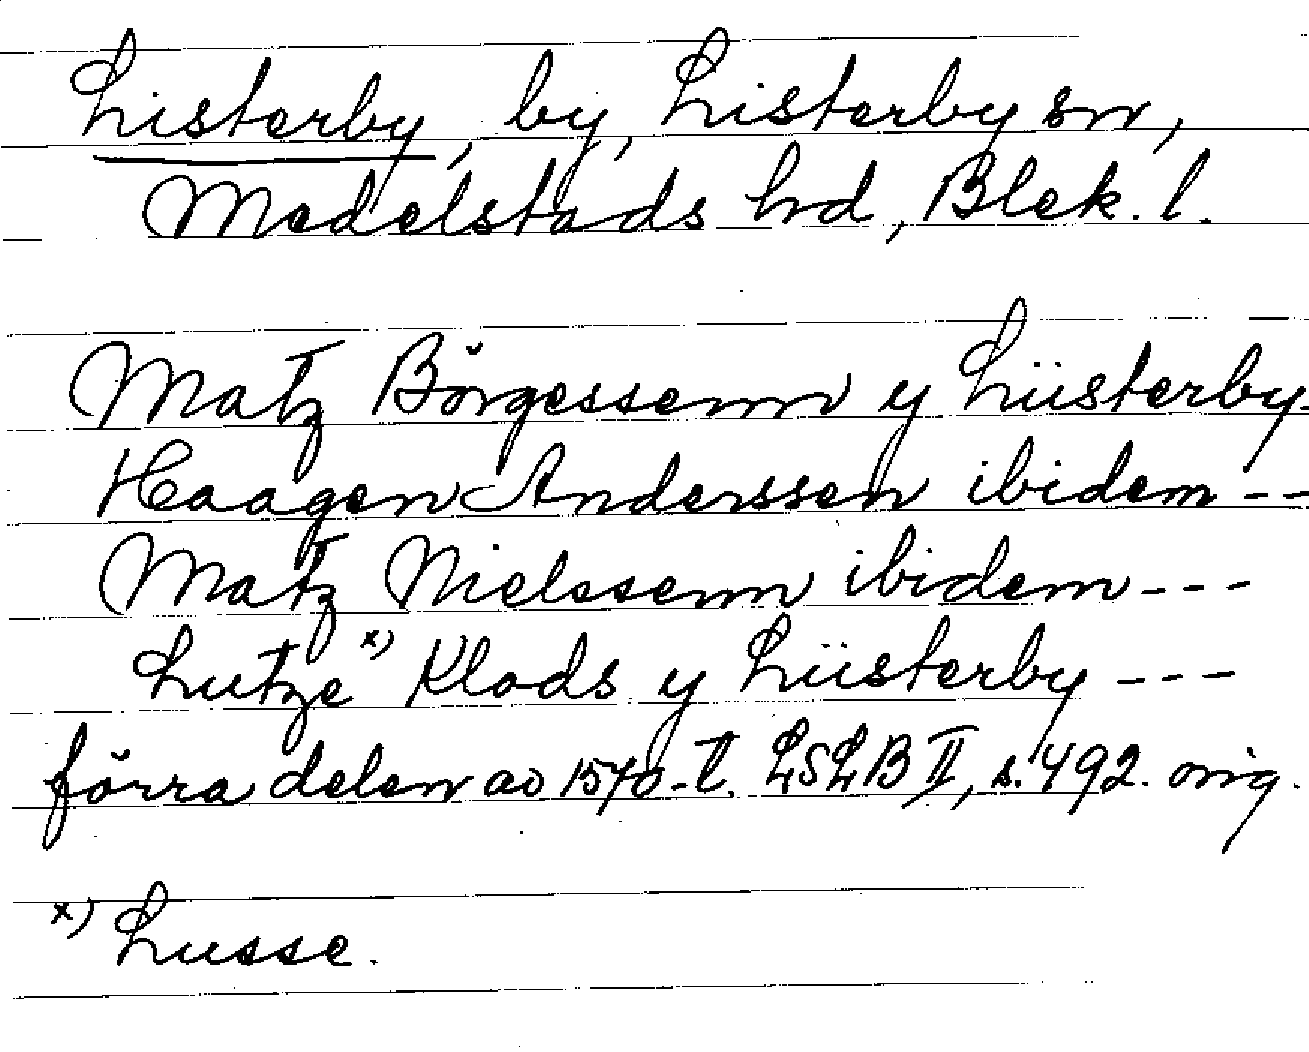 Listerby, by, Listerby sn,
Medelstads hrd, Blek. l.
Matz Börgessenn y Lüsterby-
Haagen Anderssen ibidem --
Matz Nielssenn ibidem ---
Lutze x) Klods y Lüsterby ---
förra delen av 1570-t. LSLB II, s. 492. orig.
x) Lusse.